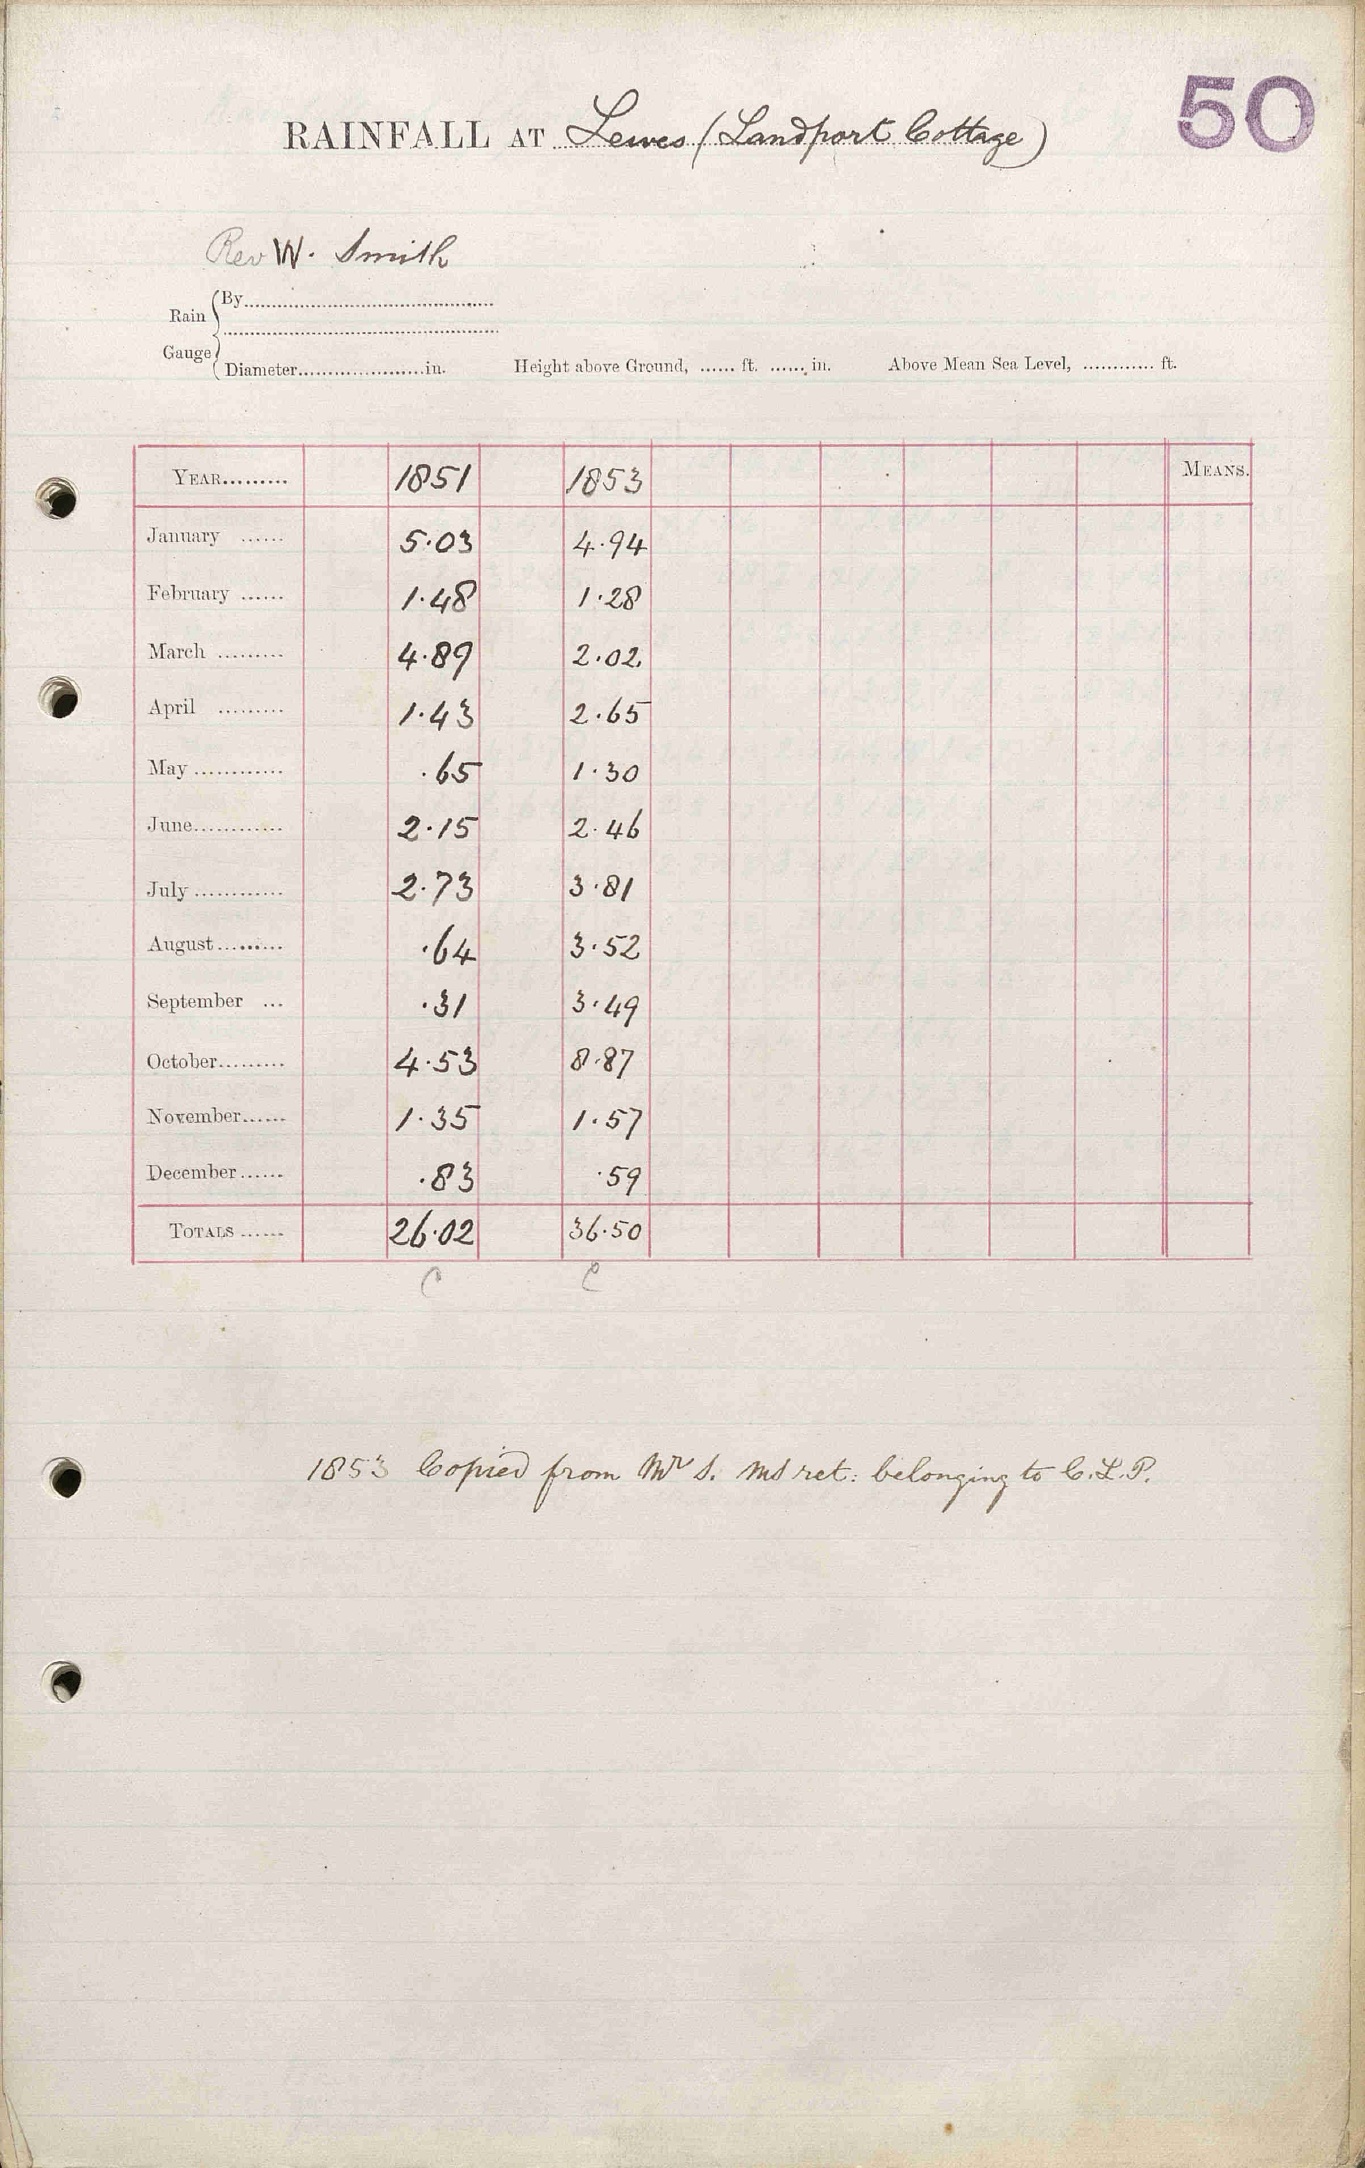 50
RAINFALL AT Lewes (Landport Cottage)
Rev W. Smith
Rain Gauge
By
Diameter in. Height above Ground, ft. in. Above Mean Sea Level, ft.
YEAR 1851 1853 MEANS.
January 5.03 4.94
February 1.48 1.28
March 4.89 2.02
April 1.43 2.65
May .65 1.30
June 2.15 2.46
July 2.73 3.81
August .64 3.52
September .31 3.49
October 4.53 8.87
November 1.35 1.57
December .83 .59
TOTALS 26.02 36.50
C C
1853 Copied from Mr S. MS ret: belonging to C.L.P.